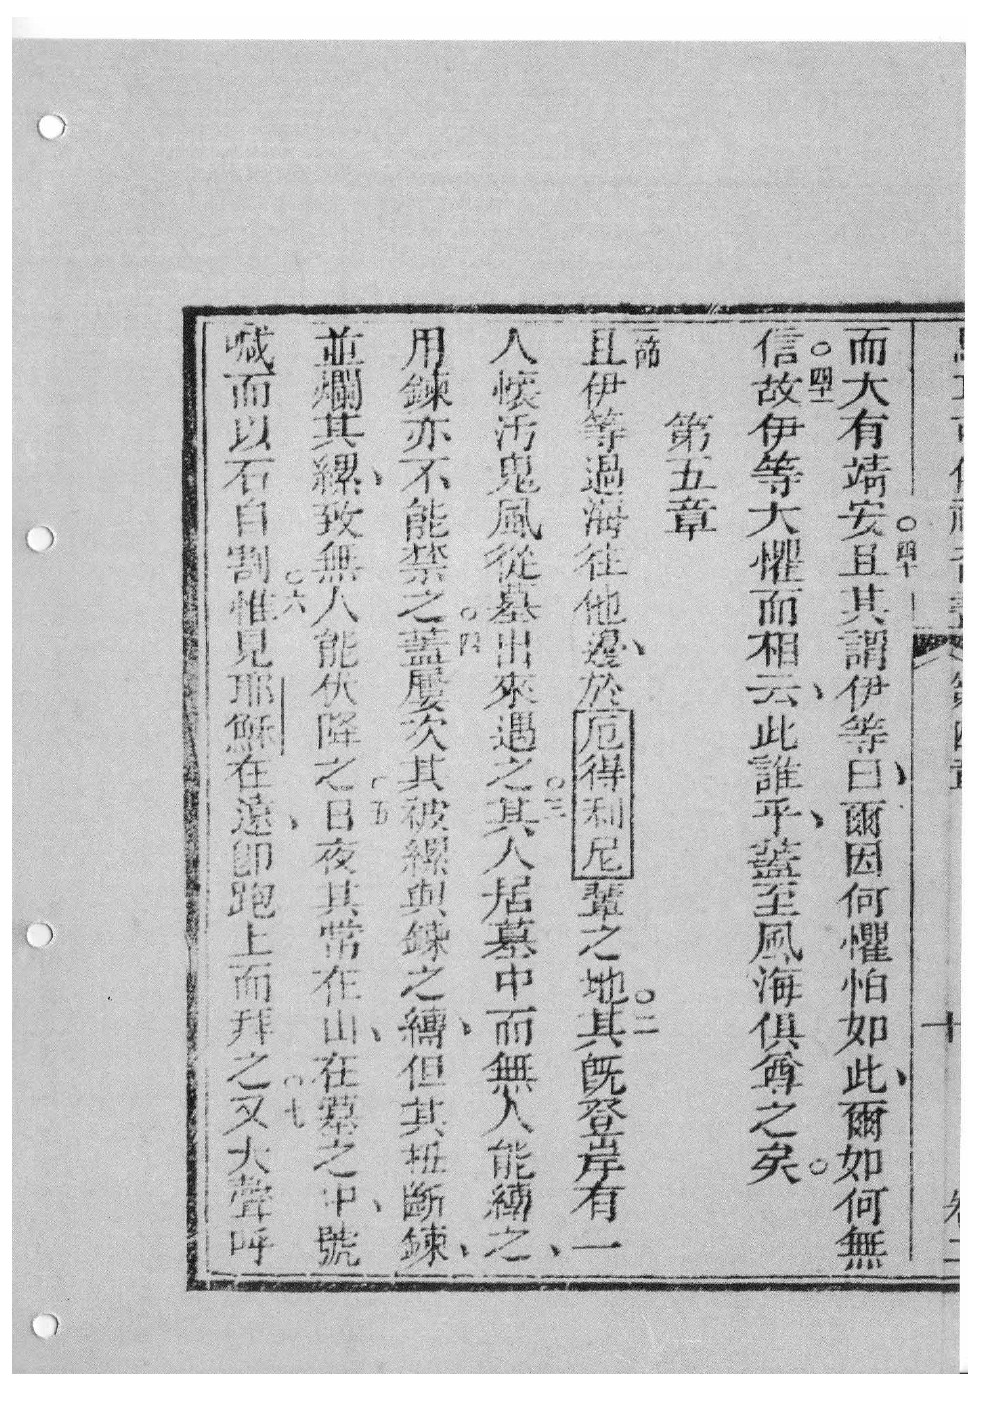 第四章
十
而大有靖安且其謂伊等曰爾因何懼怕如此爾如何無
信故伊等大懼而相云此誰乎葢至風海俱遵之矣
第五章
且伊等過海往他邊於厄得利尼輩之地其既登岸有一
人懷污鬼風從墓出來遇之其人居墓中而無人能縛之
用鍊亦不能禁之葢屢次其被縲與鍊之縛但其扭斷鍊
並爛其縲致無人能伏降之日夜其常在山在墓之中號
喊而以石自割惟見耶穌在遠卽跑上而拜之又大聲呼
四十
四一
一節
二
三
四
五
六
七